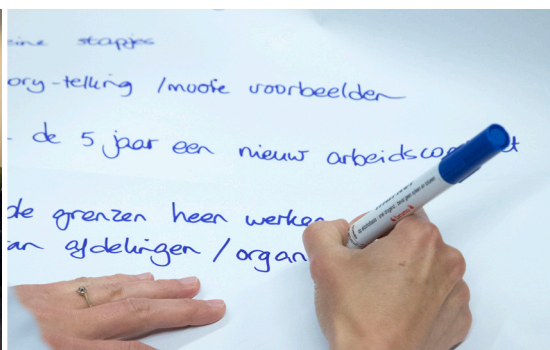 eine stapjes
ory-telling / mooie voorbeelden
- de 5 jaar een nieuw
de grenzen heen werken
an afdelingen / organ